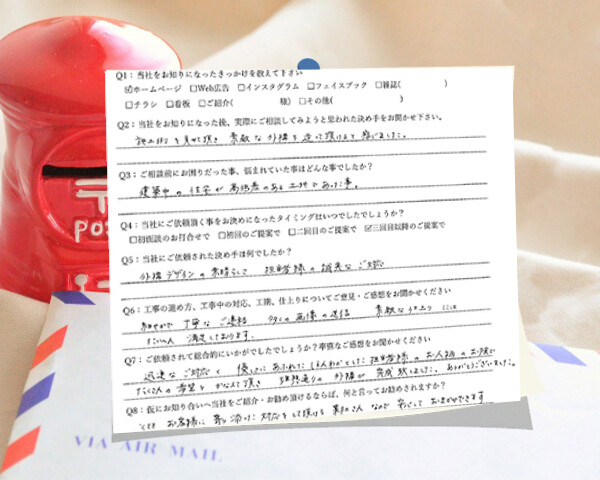 Q1：当社をお知りになったきっかけを教えて下さい
☑ホームページ □Web広告 □インスタグラム □フェイスブック □雑誌( )
□チラシ □看板 □ご紹介( 様) □その他( )
Q2：当社をお知りになった後、実際にご相談してみようと思われた決め手をお聞かせ下さい。
施工例を見せて頂き 素敵な外構を造って頂けると感じました。
Q3：ご相談前にお困りだった事、悩まれていた事はどんな事でしたか？
建築中の住宅が高低差のある土地であった事。
Q4：当社にご依頼頂く事をお決めになったタイミングはいつでしたでしょうか？
□初面談のお打合せで □初回のご提案で □二回目のご提案で ☑三回目以降のご提案で
Q5：当社にご依頼された決め手は何でしたか？
外構デザインの素晴らしさと 担当者様の誠実なご対応
Q6：工事の進め方、工事中の対応、工期、仕上りについてご意見・ご感想をお聞かせください
細やかで丁寧なご連絡 多くの画像の送信 素敵な仕上り には
満足しております。
Q7：ご依頼されて総合的にいかがでしたでしょうか？率直なご感想をお聞かせください
迅速なご対応と 優しさにあふれた 担当者様のお人柄のお陰で
たくさんの希望をかなえて頂き 理想通りの外構が完成致しました。ありがとうございました。
Q8：仮にお知り合いへ当社をご紹介・お勧め頂けるならば、何と言ってお勧めされますか？
とても お客様に寄り添った対応をして頂ける なので 安心して おまかせできます
VIA AIR MAIL
〒
POS